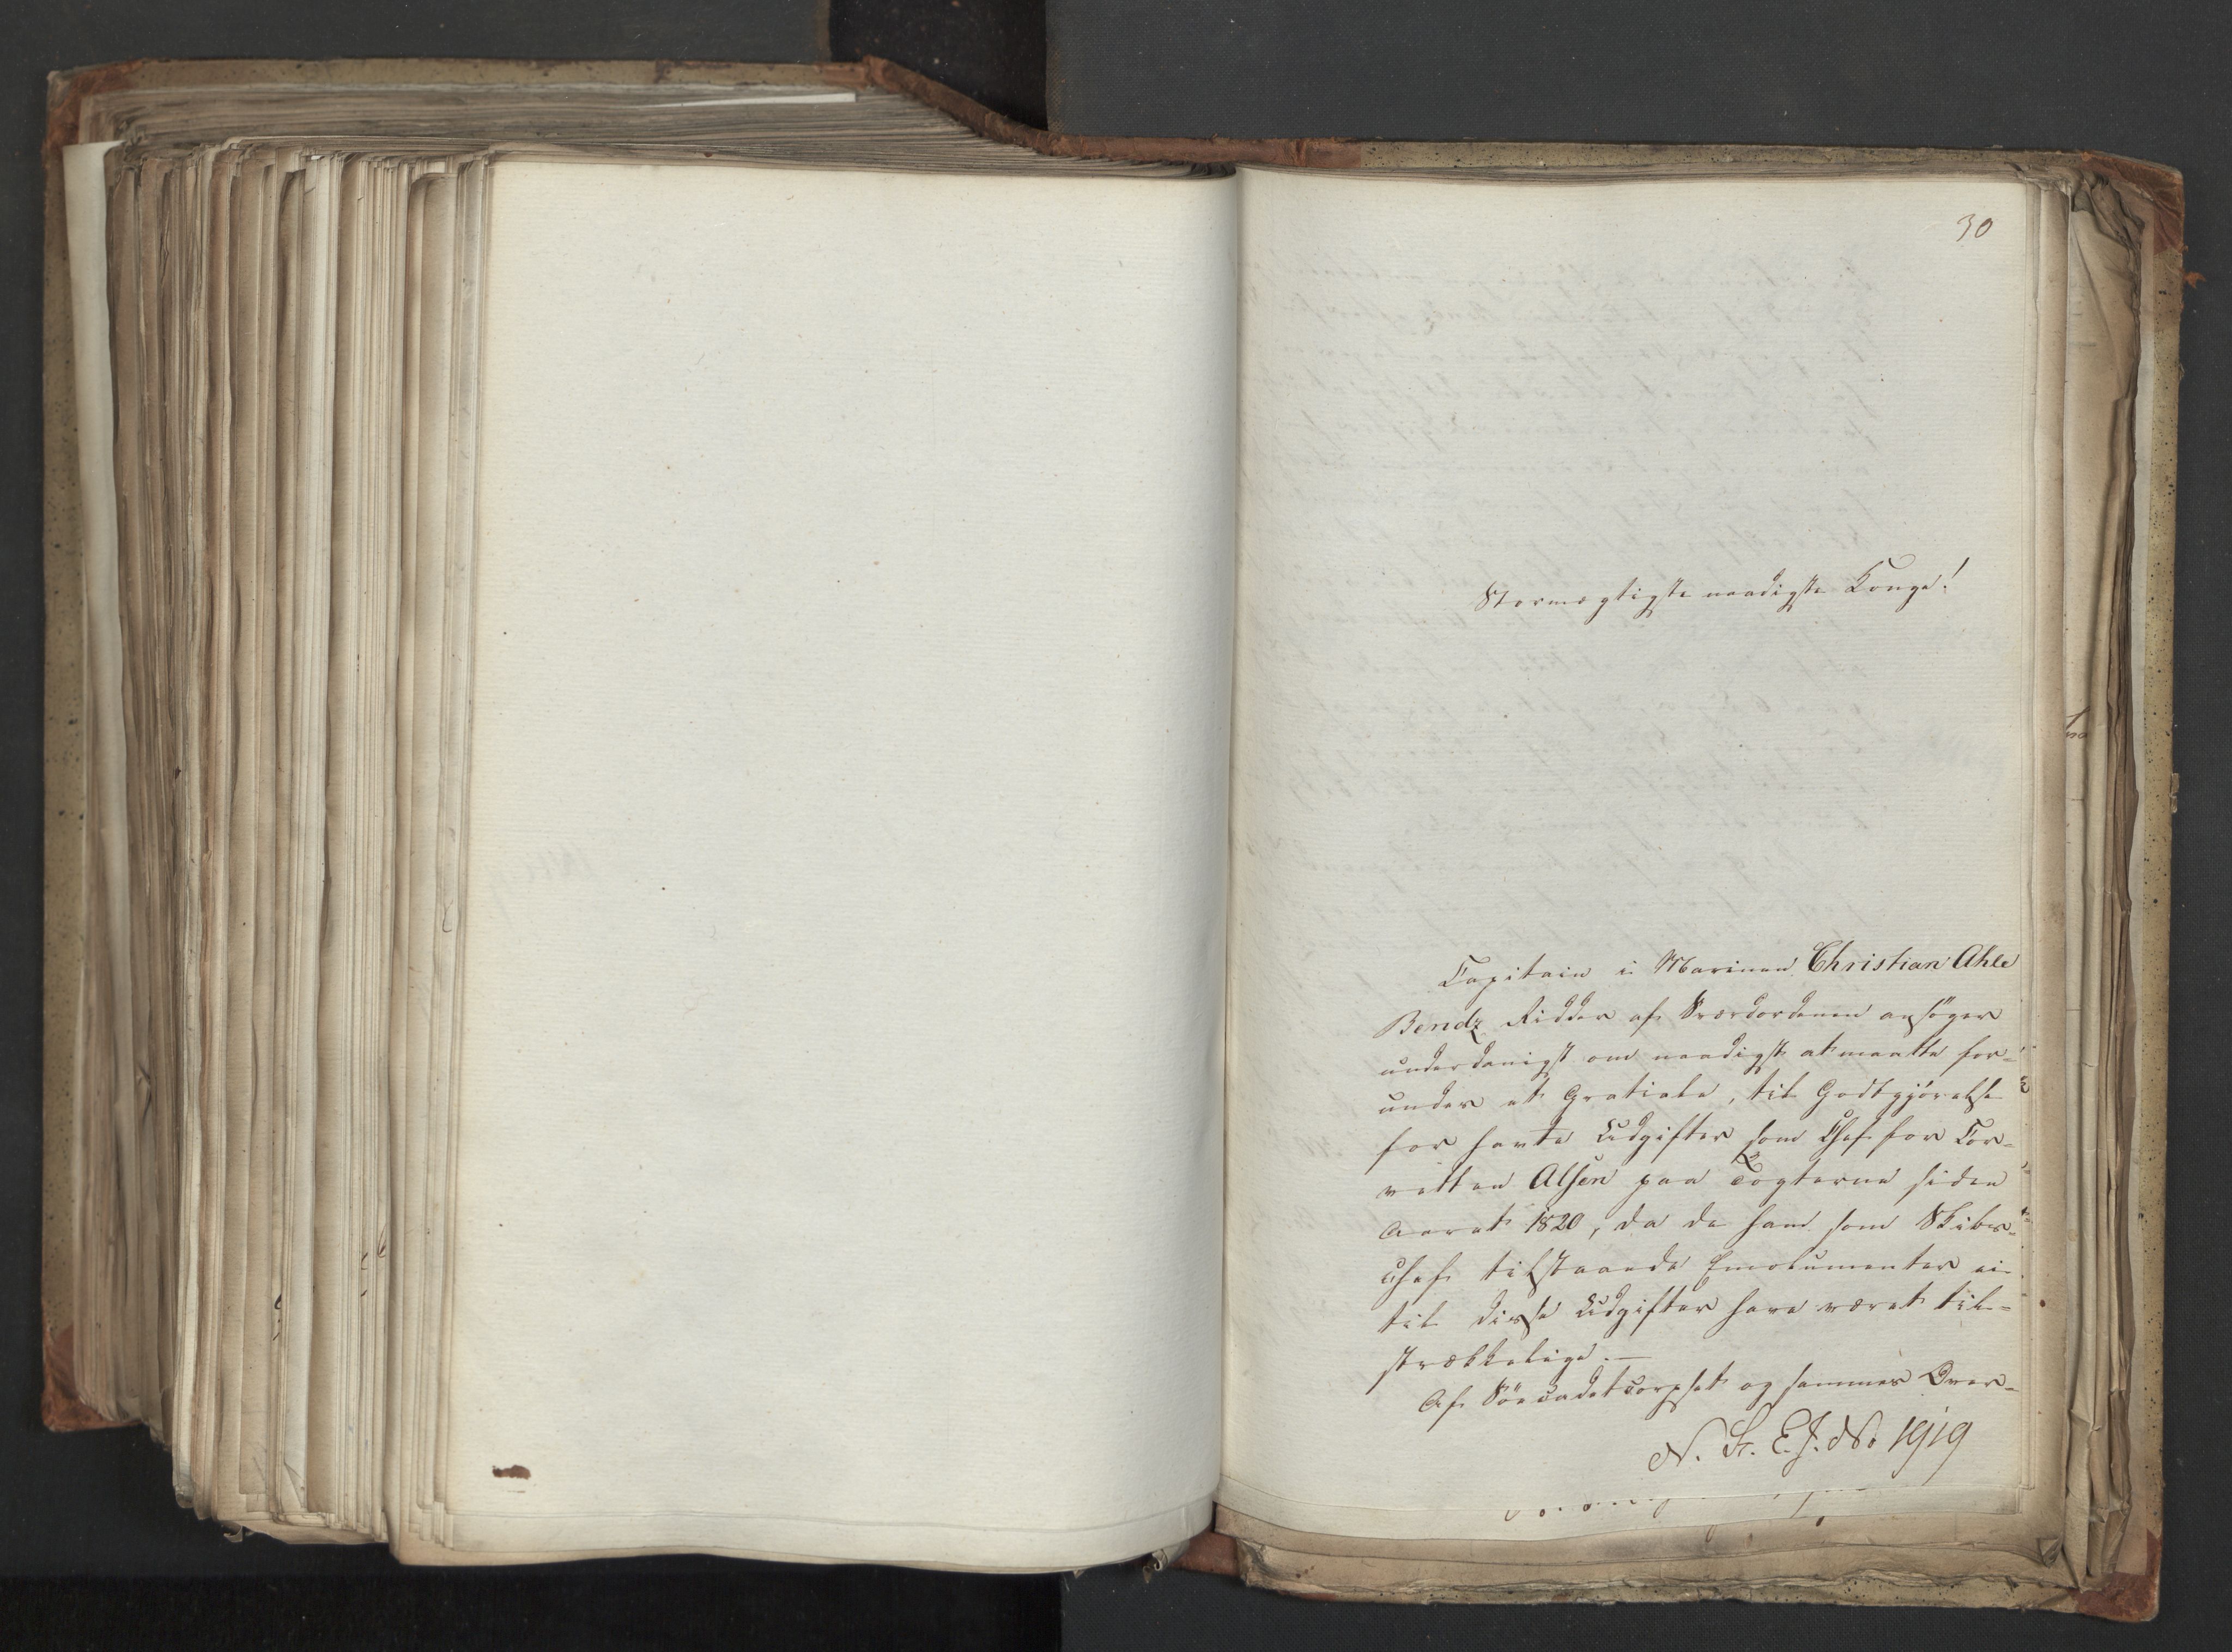 30
Stormægtigste naadigste Konge!
Capitain i Marinen Christian Ahle
Bendz Ridder af Sværdordenen ansøger
underdanigst om naadigst at maatte for-
undes et Gratiale, til Godtgjørelse
for havte Udgifter som Chef for Cor-
vetten Alsen paa Togterne siden
Aaret 1820, da de ham som Skibs-
chef tilstaaede Emolumenter ei
til disse Udgifter have været til-
strækkelige.—
Af Søecadetcorpset og sammes Over-
N. S. E. J. No 1919